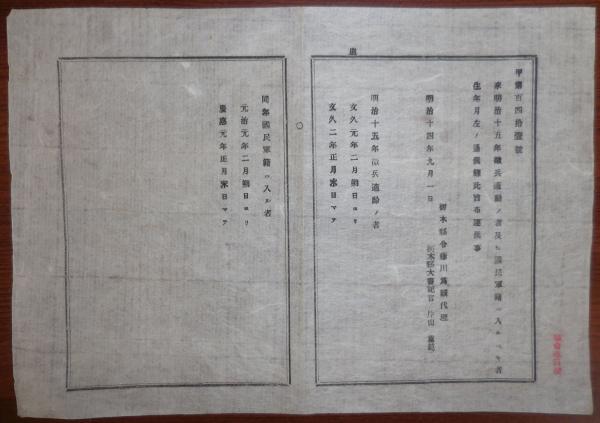 甲第百四拾壹號
來明治十五年徴兵適齡ノ者及ヒ國民軍籍ニ入ルヘキ者
生年月左ノ通候條此旨布達候事
明治十四年九月一日
栃木縣令藤川爲親代理
栃木縣大書記官 片山重範
明治十五年徴兵適齡ノ者
文久元年二月朔日ヨリ
文久二年正月末日マテ
○
同年國民軍籍ニ入ル者
元治元年二月朔日ヨリ
慶應元年正月末日マテ